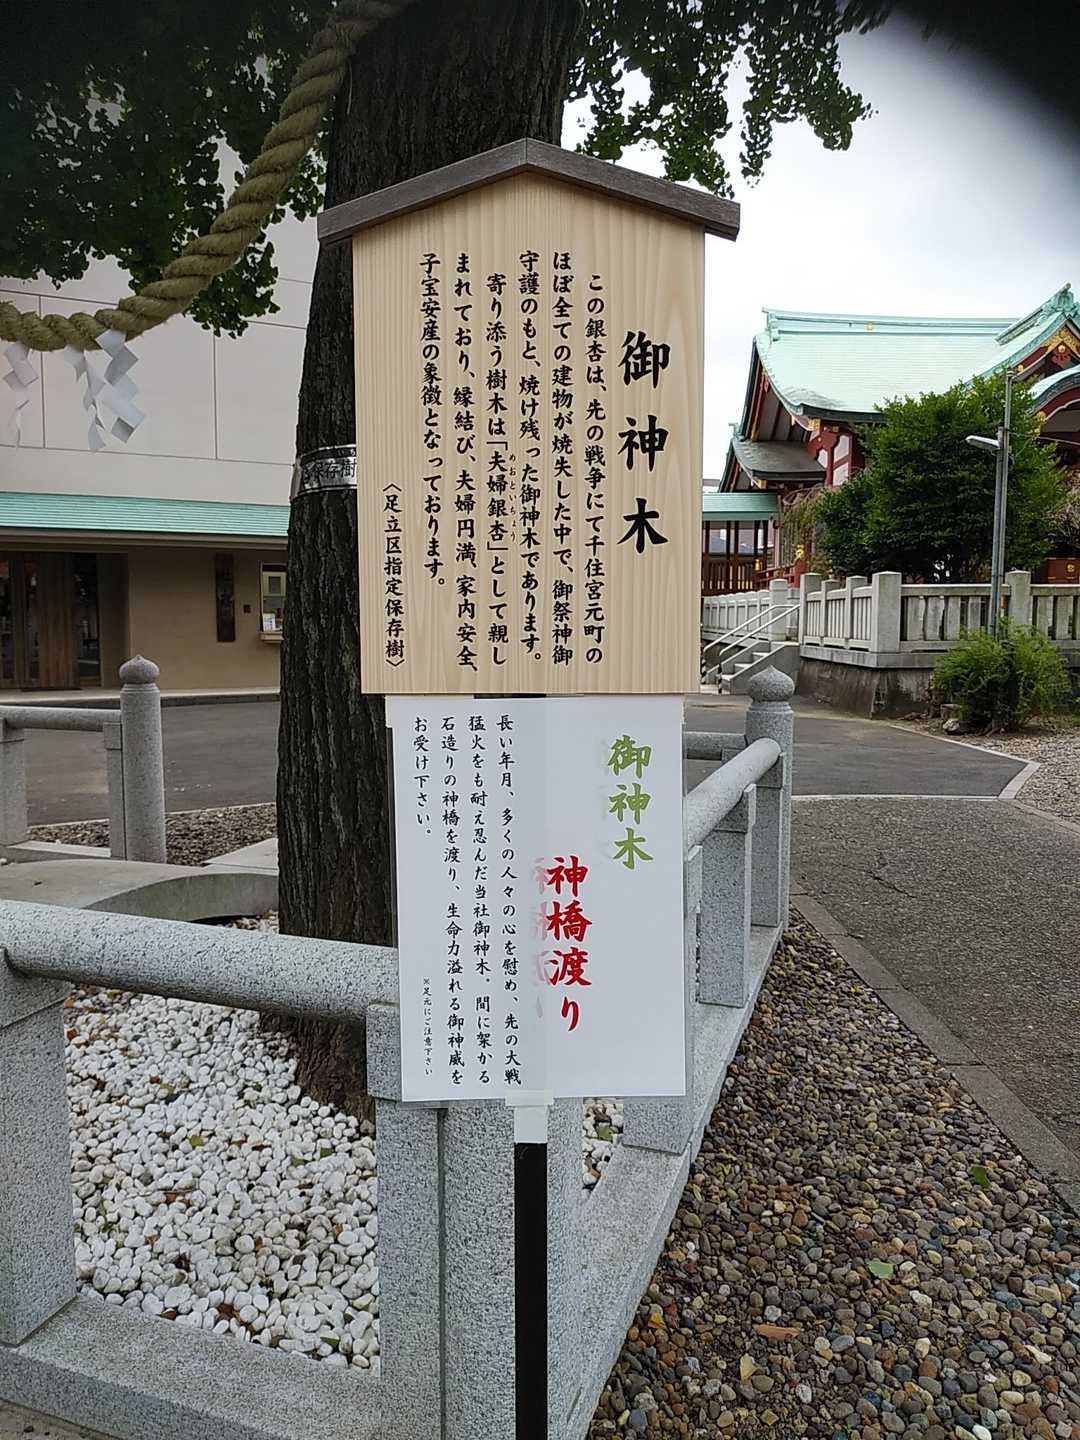 御神木
この銀杏は、先の戦争にて千住宮元町の
ほぼ全ての建物が焼失した中で、御祭神御
守護のもと、焼け残った御神木であります。
寄り添う樹木は「夫婦銀杏」として親し
めおといちょう
まれており、縁結び、夫婦円満、家内安全、
子宝安産の象徴となっております。
〈足立区指定保存樹〉
保存樹
御神木
神橋渡り
長い年月、多くの人々の心を慰め、先の大戦
猛火をも耐え忍んだ当社御神木。間に架かる
石造りの神橋を渡り、生命力溢れる御神威を
お受け下さい。
※足元にご注意下さい